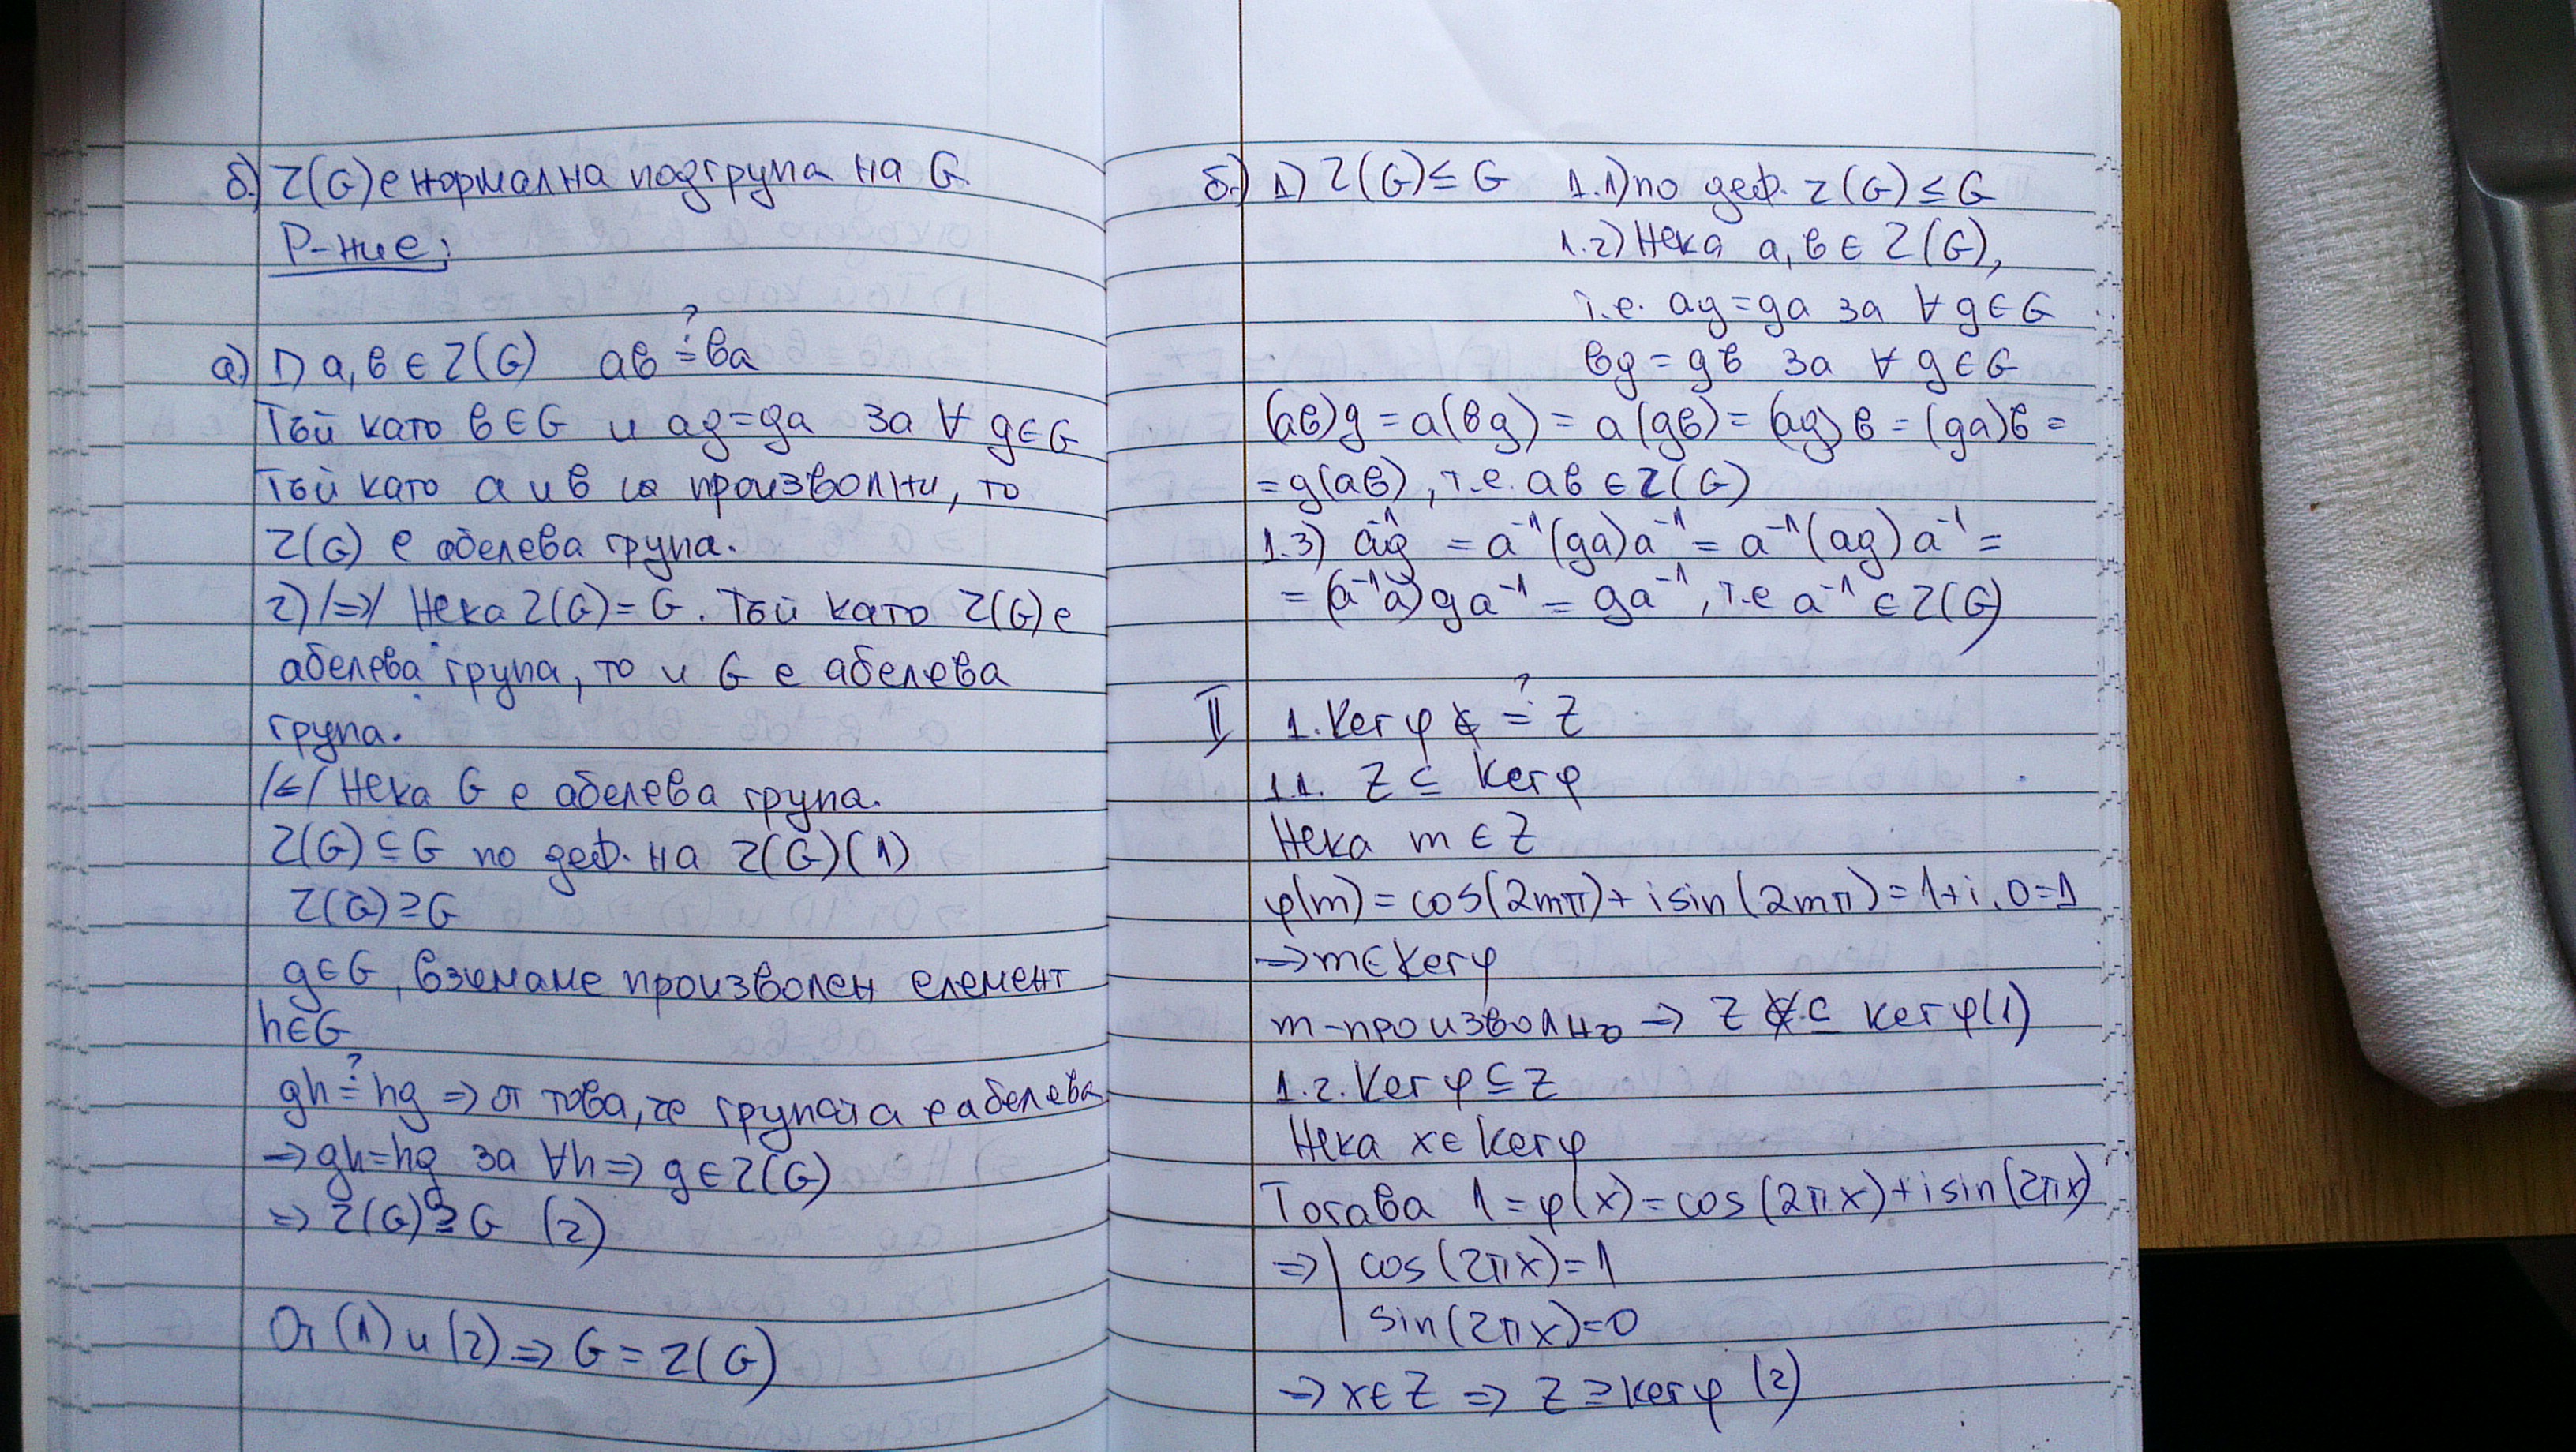 б.) Z(G) е нормална подгрупа на G.
Р-ние:
а) 1) a, b ∈ Z(G) ab ≟ ba
Тъй като b ∈ G и ag=ga за ∀ g∈G
Тъй като a и b са произволни, то
Z(G) е абелева група.
2) /⇒/ Нека Z(G)=G. Тъй като Z(G) е
абелева група, то и G е абелева
група.
/⇐/ Нека G е абелева група.
Z(G)⊆G по деф. на Z(G) (1)
Z(G)⊇G
g∈G, вземаме произволен елемент
h∈G
gh ≟ hg ⇒ от това, че групата е абелева
→ gh=hg за ∀h ⇒ g∈Z(G)
⇒ Z(G)⊇G (2)
От (1) и (2) ⇒ G = Z(G)
б.) 1) Z(G) ≤ G 1.1) по деф. Z(G) ≤ G
1.2) Нека a, b ∈ Z(G),
т.е. ag=ga за ∀ g∈G
bg = gb за ∀ g∈G
(ab)g = a(bg) = a(gb) = (ag)b = (ga)b =
= g(ab), т.е. ab ∈ Z(G)
1.3) a⁻¹g = a⁻¹(ga)a⁻¹ = a⁻¹(ag)a⁻¹ =
= (a⁻¹a)ga⁻¹ = ga⁻¹, т.е a⁻¹ ∈ Z(G)
II 1. Ker φ ≟ Z
1.1. Z ⊆ Ker φ
Нека m ∈ Z
φ(m) = cos(2mπ) + i sin(2mπ) = 1+i.0=1
→ m∈Ker φ
m-произволно → Z ⊆ Ker φ (1)
1.2. Ker φ ⊆ Z
Нека x∈Ker φ
Тогава 1=φ(x)=cos(2πx)+i sin(2πx)
⇒ | cos(2πx)=1
| sin(2πx)=0
→ x∈Z ⇒ Z ⊇ Ker φ (2)